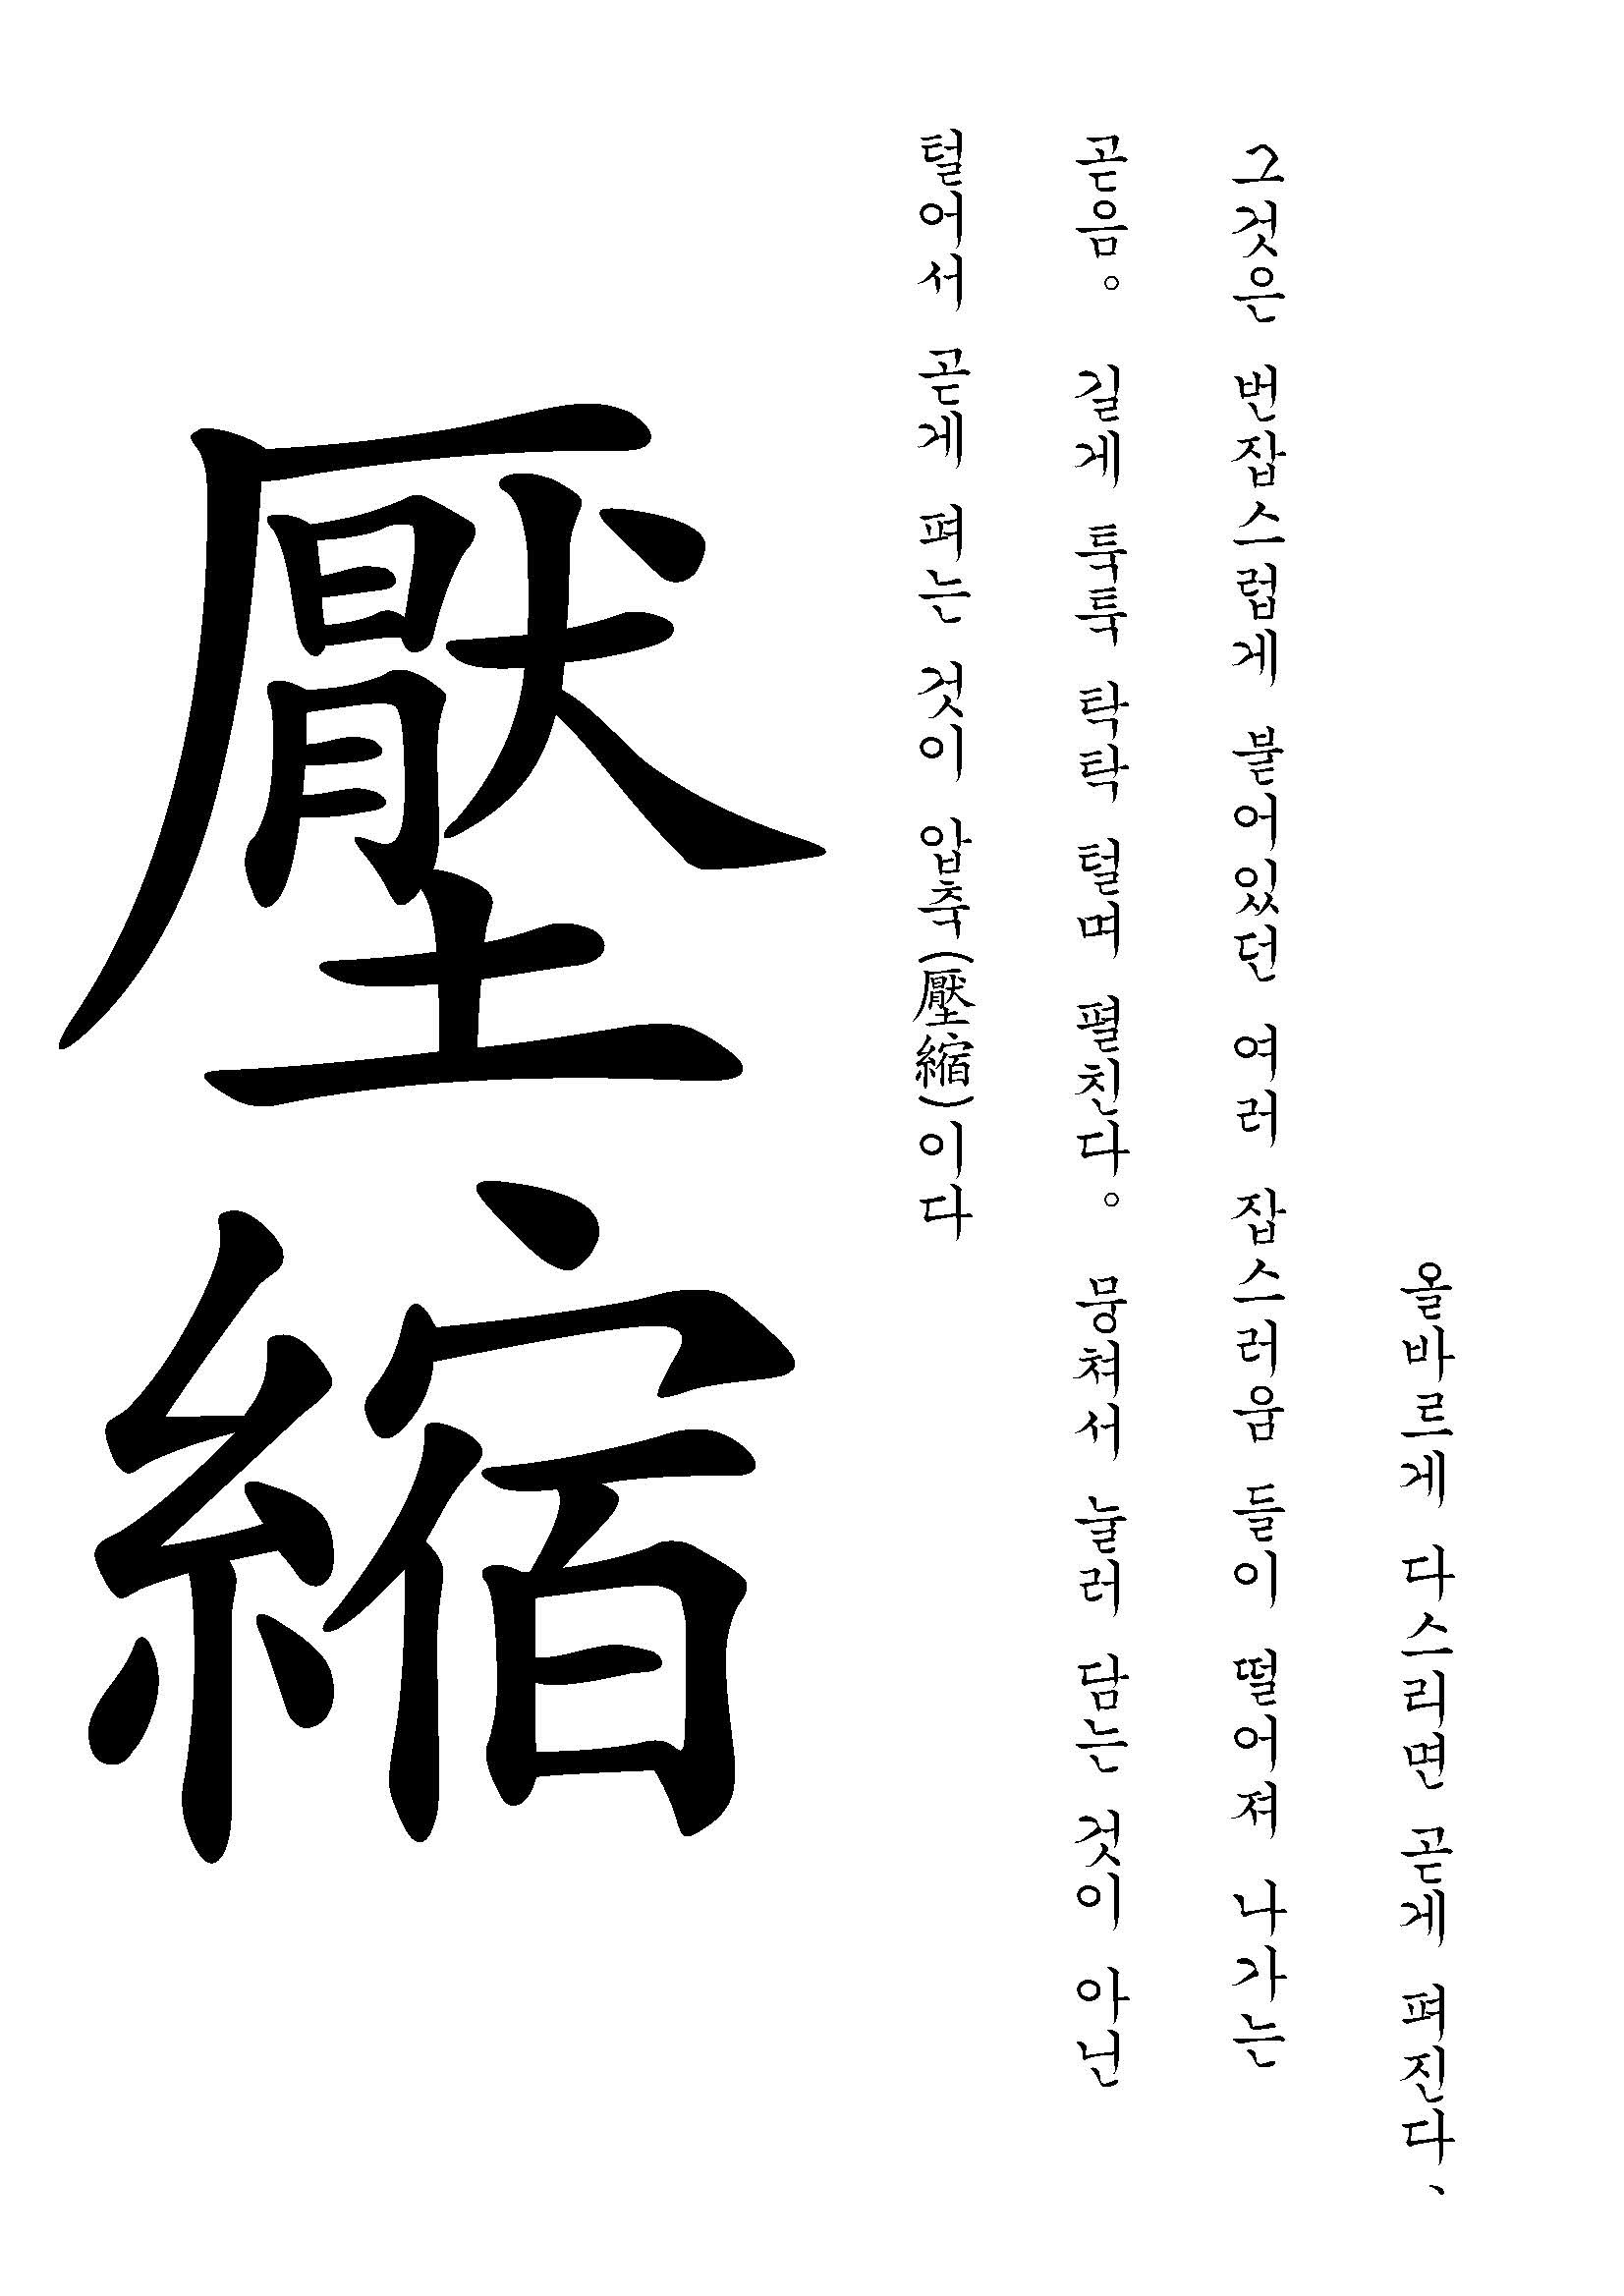 올바르게 다스리면 곧게 펴진다、
그것은 번잡스럽게 붙어있던 여러 잡스러움 들이 떨어져 나가는
곧음。 길게 툭툭 탁탁 털며 펼친다。 뭉쳐서 눌러 담는 것이 아닌
털어서 곧게 펴는 것이 압축(壓縮)이다
壓縮